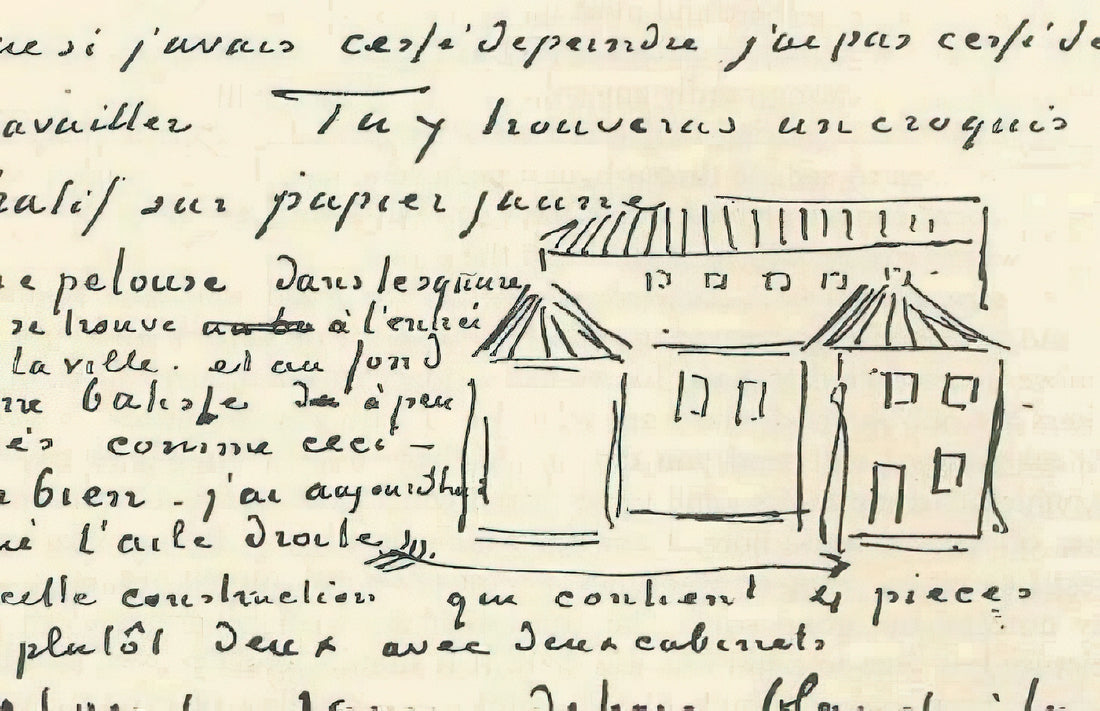 ue si j'avais cessé de peindre j'ai pas cessé de
availler Tu y trouveras un croquis
hatif sur papier jaune
ne pelouse dans le square
se trouve à l'entrée
la ville. et au fond
ne batisse à peu
ès comme ceci –
bien. j'ai aujourdhui
ué l'aile droite
cette construction qui contient 4 pieces
plutôt deux avec deux cabinets